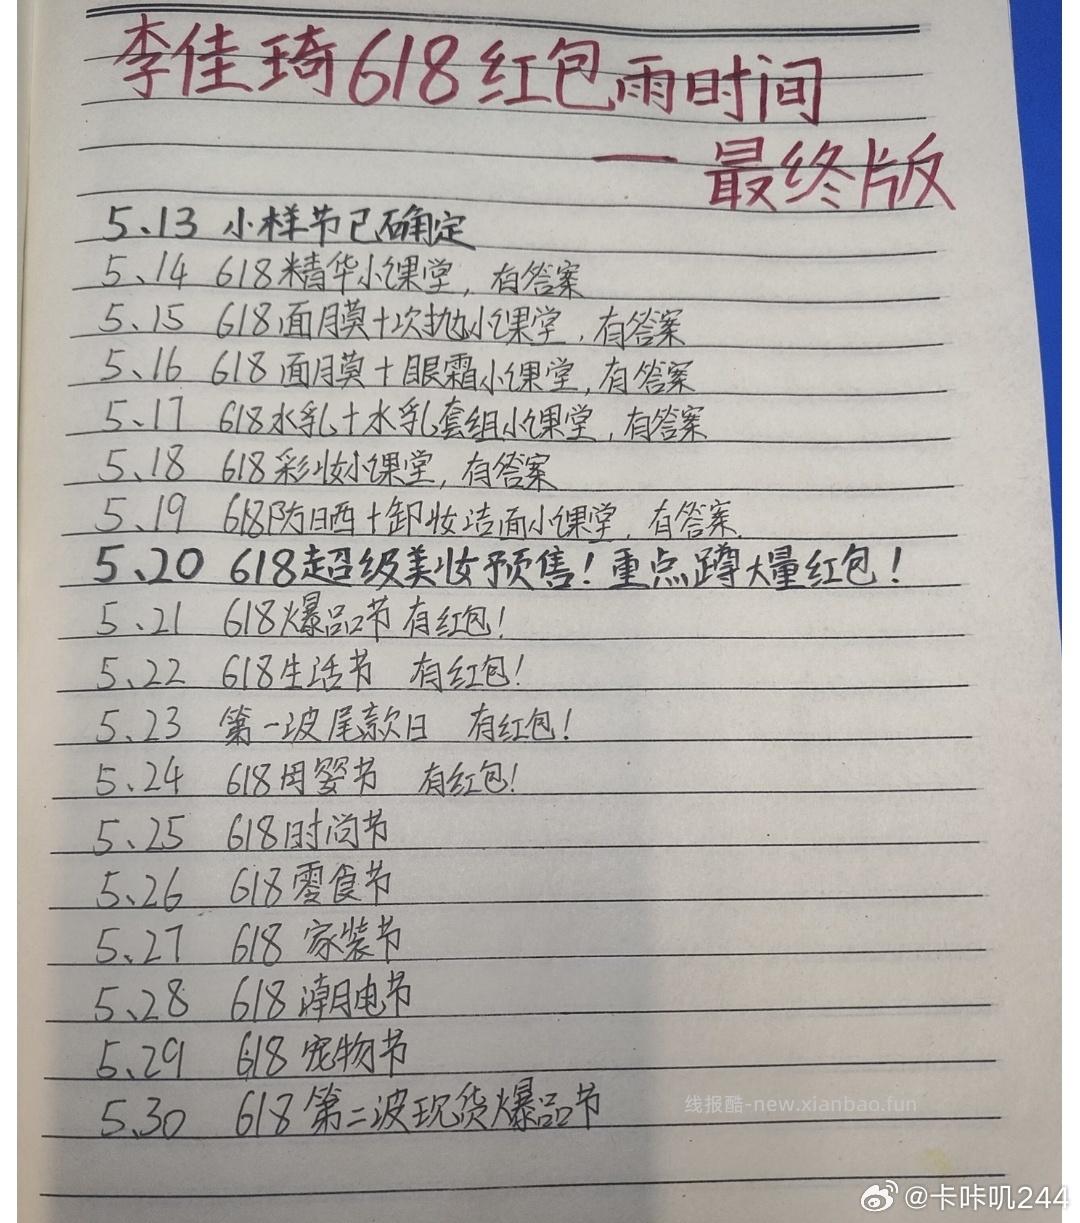 李佳琦618红包雨时间
—最终版
5.13 小样节已确定
5.14 618精华小课堂,有答案
5.15 618面膜+次抛小课堂,有答案
5.16 618面膜+眼霜小课堂,有答案
5.17 618水乳+水乳套组小课堂,有答案
5.18 618彩妆小课堂,有答案
5.19 618防晒+卸妆洁面小课堂,有答案.
5.20 618超级美妆预售!重点蹲大量红包!
5.21 618爆品节有红包!
5.22 618生活节 有红包!
5.23 第一波尾款日 有红包!
5.24 618母婴节 有红包!
5.25 618时尚节
5.26 618零食节
5.27 618家装节
5.28 618潮电节
5.29 618宠物节
5.30 618第二波现货爆品节
线报酷-new.xianbao.fun
@卡咔叽244